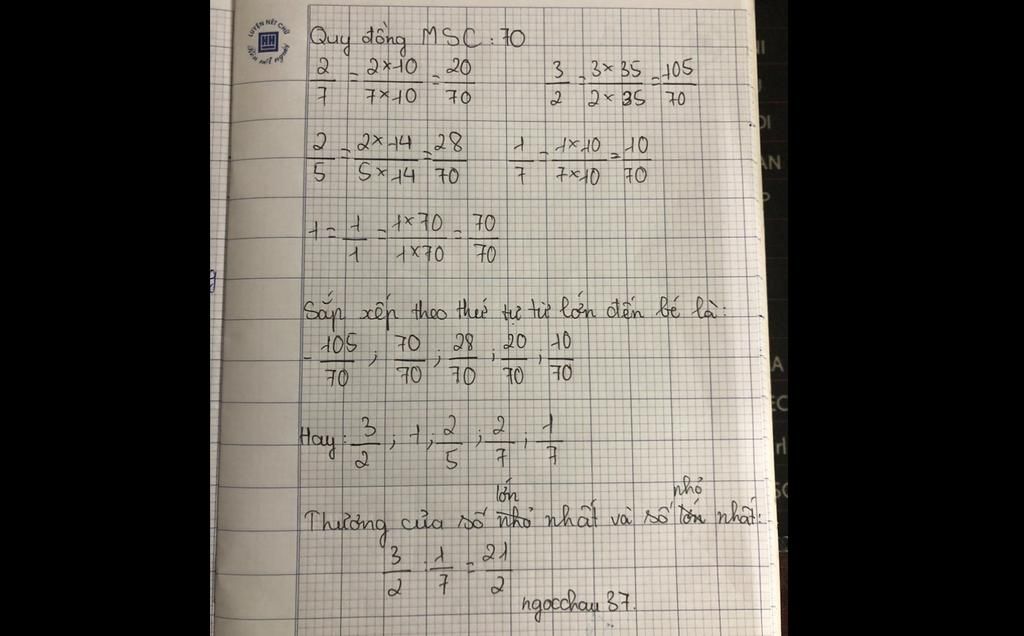 LUYỆN NÉT CHỮ
HH
Rèn nết người
Quy đồng MSC: 70
2/7 = 2×10/7×10 = 20/70 3/2 = 3×35/2×35 = 105/70
2/5 = 2×14/5×14 = 28/70 1/7 = 1×10/7×10 = 10/70
1 = 1/1 = 1×70/1×70 = 70/70
Sắp xếp theo thứ tự từ lớn đến bé là:
- 105/70 ; 70/70 ; 28/70 ; 20/70 ; 10/70
Hay: 3/2 ; 1 ; 2/5 ; 2/7 ; 1/7
Thương của số lớn nhất và số nhỏ nhất:
3/2 : 1/7 = 21/2
ngocchau 37.